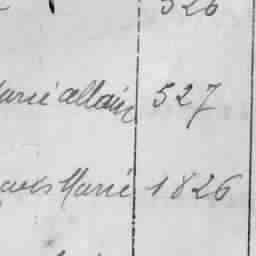 526
Marie allain 527
Marie 1826